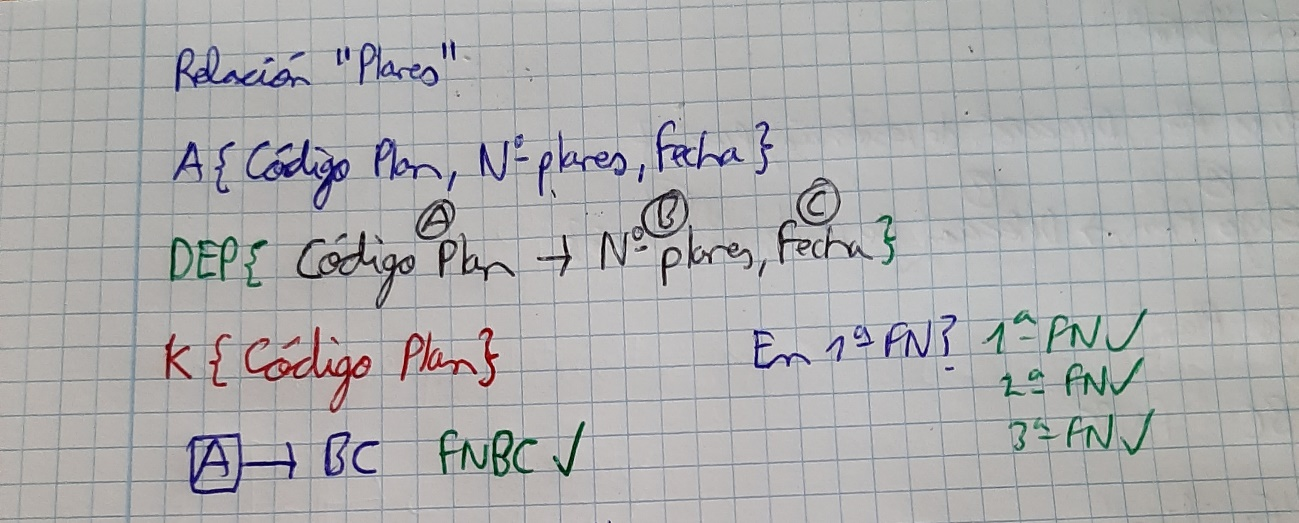 Relación "Planes"
A{ Código Plan, Nº planes, fecha }
A B C
DEP{ Código Plan → Nº planes, fecha }
K { Código Plan}
En 1ª FN? 1ª FN ✓
2ª FN ✓
3ª FN ✓
A → BC FNBC ✓